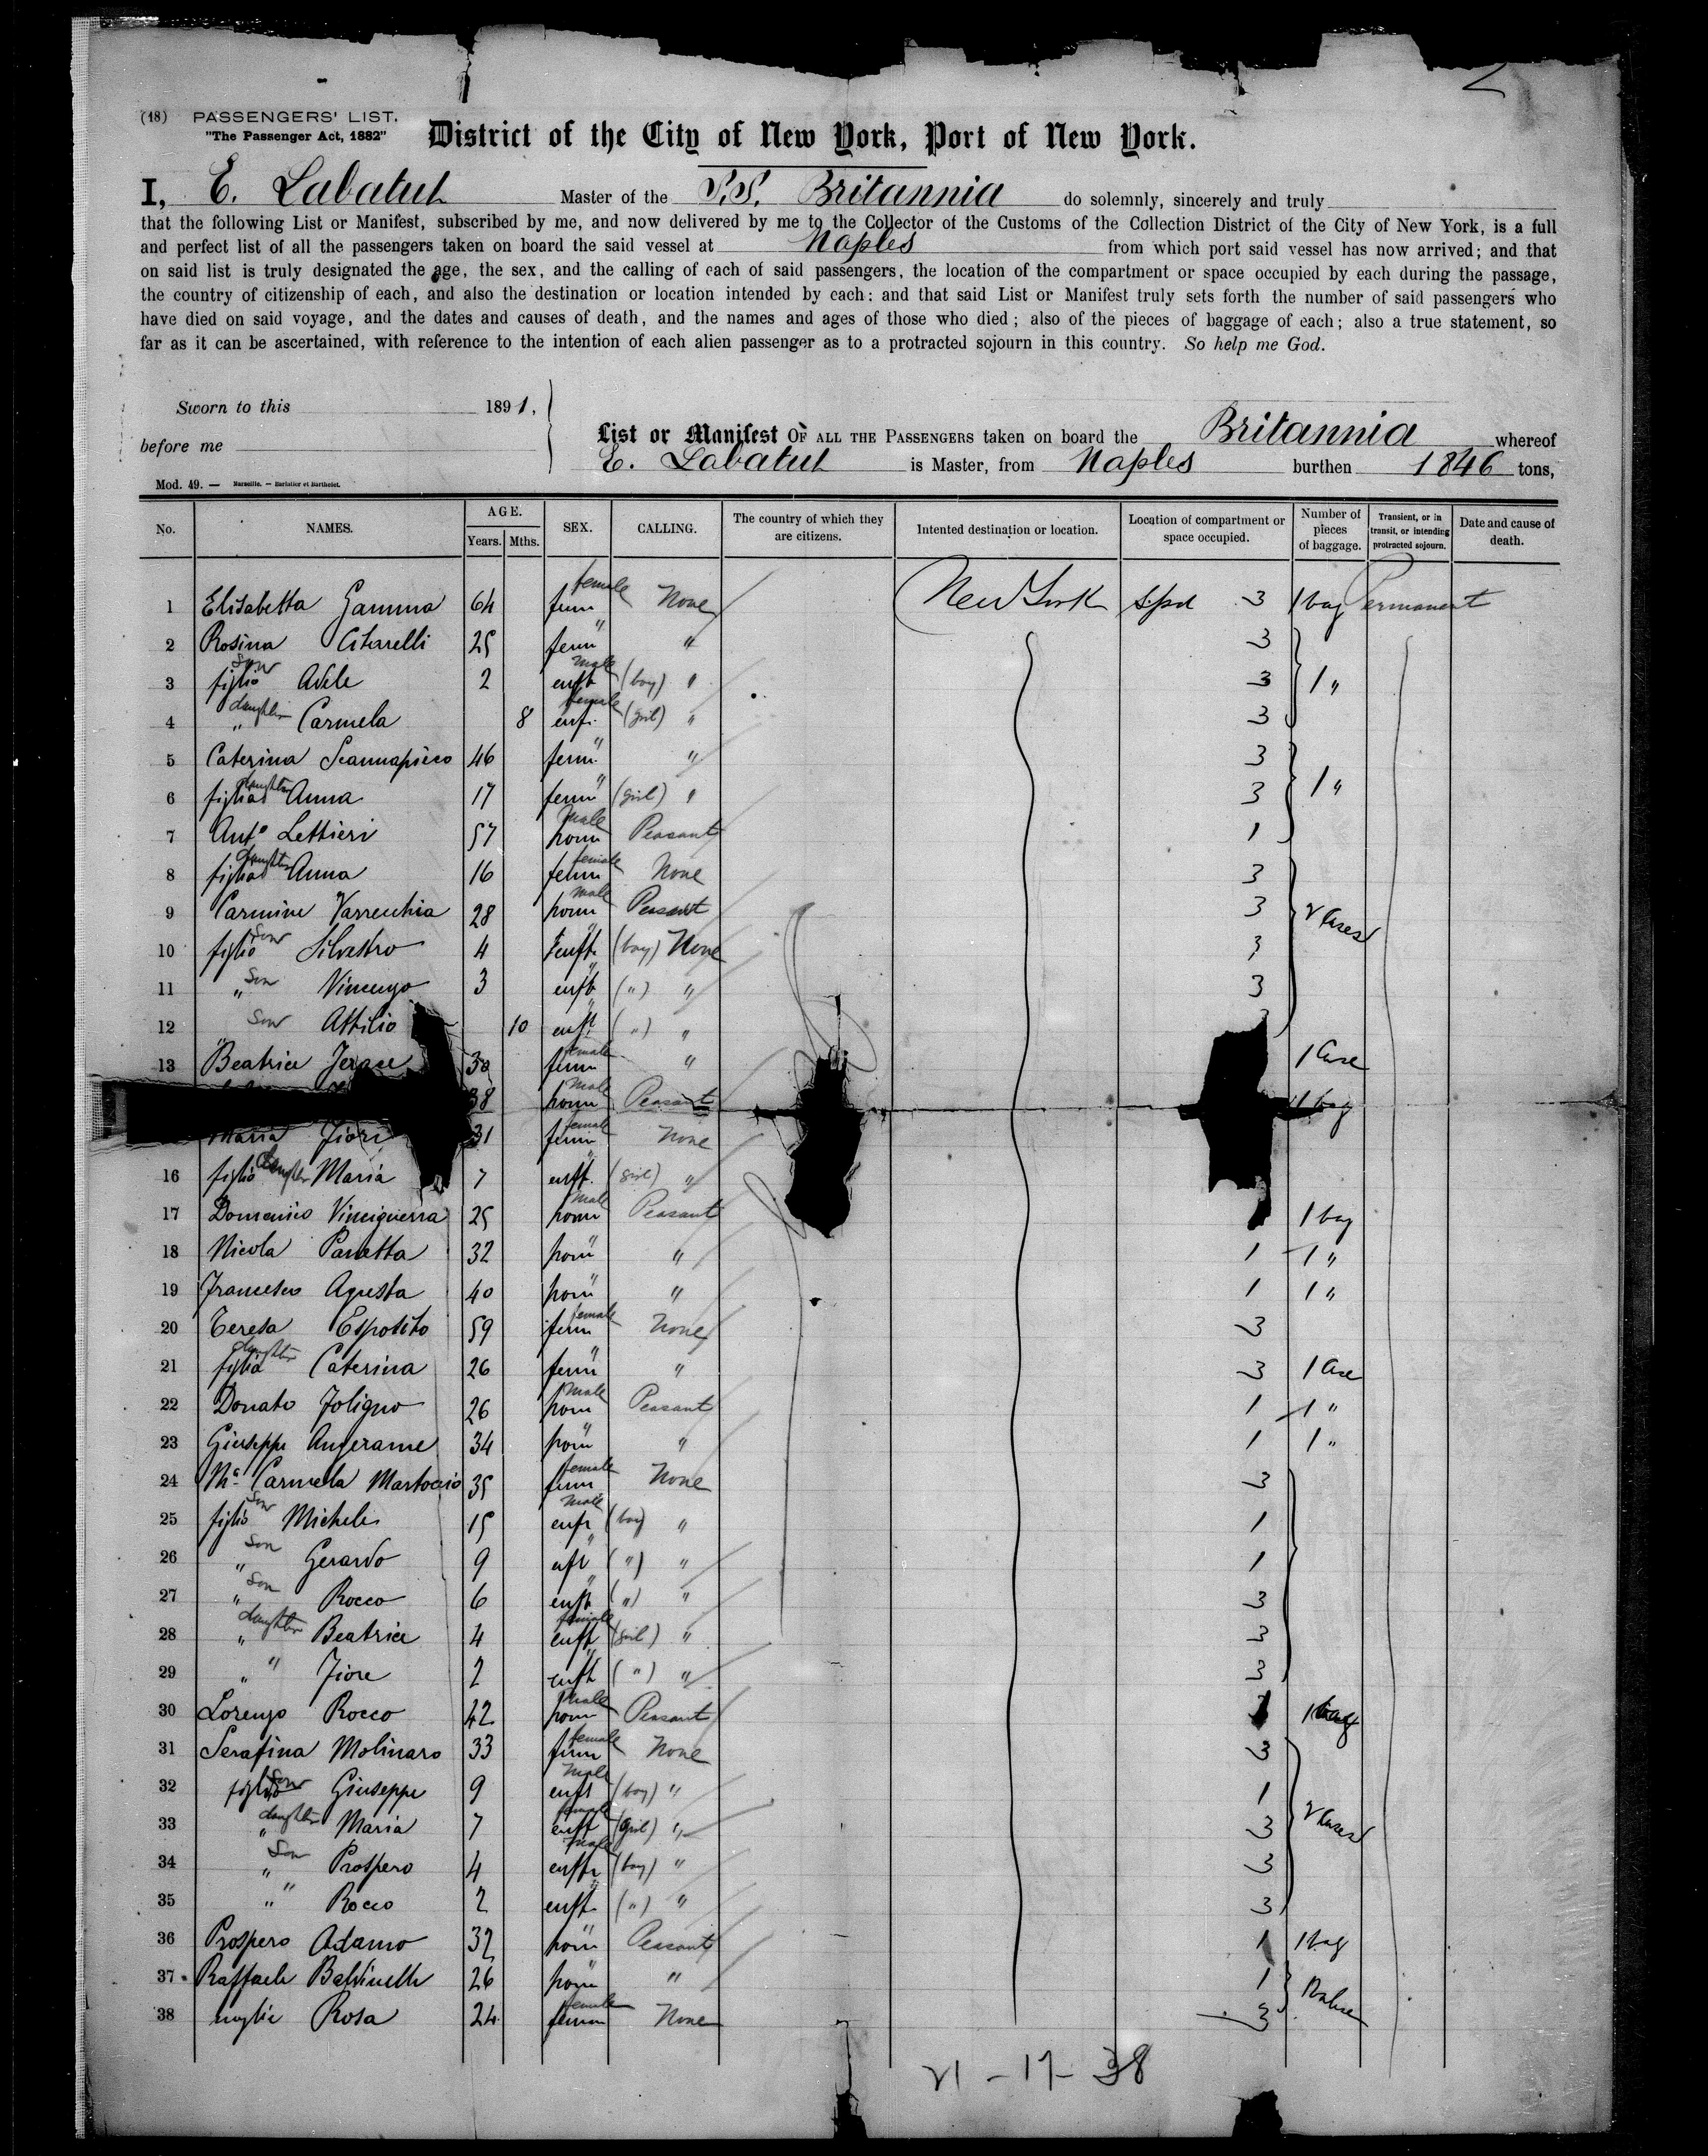 (18) PASSENGERS' LIST.
"The Passenger Act, 1882"
District of the City of New York, Port of New York.
I, E. Labatut Master of the S.S. Britannia do solemnly, sincerely and truly
that the following List or Manifest, subscribed by me, and now delivered by me to the Collector of the Customs of the Collection District of the City of New York, is a full
and perfect list of all the passengers taken on board the said vessel at Naples from which port said vessel has now arrived; and that
on said list is truly designated the age, the sex, and the calling of each of said passengers, the location of the compartment or space occupied by each during the passage,
the country of citizenship of each, and also the destination or location intended by each: and that said List or Manifest truly sets forth the number of said passengers who
have died on said voyage, and the dates and causes of death, and the names and ages of those who died; also of the pieces of baggage of each; also a true statement, so
far as it can be ascertained, with reference to the intention of each alien passenger as to a protracted sojourn in this country. So help me God.
Sworn to this 1891,
before me
List or Manifest OF ALL THE PASSENGERS taken on board the Britannia whereof
E. Labatut is Master, from Naples burthen 1846 tons,
Mod. 49. — Marseille. — Barlatier et Barthelet.
No. NAMES. AGE. Years. Mths. SEX. CALLING. The country of which they are citizens. Intented destination or location. Location of compartment or space occupied. Number of pieces of baggage. Transient, or in transit, or intending protracted sojourn. Date and cause of death.
1 Elisabetta Gamma 64 fem female None New York 3 1 bag Permanent
2 Rosina Citarelli 25 fem " " 3
3 figlio son Adele 2 enft male (boy) " 3 1 "
4 " daughter Carmela 8 enf. female (girl) " 3
5 Caterina Scannapieco 46 fem. " " 3
6 figlia daughter Anna 17 fem " (girl) " 3 1 "
7 Ant° Lettieri 57 hom male Peasant 1
8 figlia daughter Anna 16 fem female None 3
9 Carmine Varrecchia 28 hom male Peasant 3 2 Cases
10 figlio son Silvestro 4 enft " (boy) None 3
11 " son Vincenzo 3 enft " (") " 3
12 " son Attilio 10 enft " (") "
13 Beatrice Jerace 30 fem female " 1 Case
38 hom male Peasant 1 bag
Maria Fiori 31 fem female None
16 figlia daughter Maria 7 enft. " (girl) "
17 Domenico Vinciguerra 25 hom male Peasant 1 bag
18 Nicola Panetta 32 hom " " 1 1 "
19 Francesco Agresta 40 hom " " 1 1 "
20 Teresa Esposito 59 fem female None 3
21 figlia daughter Caterina 26 fem " " 3 1 Case
22 Donato Foligno 26 hom male Peasant 1 1 "
23 Giuseppe Angerame 34 hom " " 1 1 "
24 Mª Carmela Martoccio 35 fem female None 3
25 figlio son Michele 15 enft male (boy) " 1
26 " son Gerardo 9 enft " (") " 1
27 " son Rocco 6 enft " (") " 3
28 " daughter Beatrice 4 enft female (girl) " 3
29 " " Fiore 2 enft " (") " 3
30 Lorenzo Rocco 42 hom male Peasant 1 bag
31 Serafina Molinaro 33 fem female None 3
32 figlio son Giuseppe 9 enft male (boy) " 1
33 " daughter Maria 7 enft female (girl) " 3 2 Cases
34 " son Prospero 4 enft male (boy) " 3
35 " " Rocco 2 enft " (") " 3
36 Prospero Adamo 32 hom " Peasant 1 1 bag
37 Raffaele 26 hom " " 1
38 moglie Rosa 24 femm female None 3
21 - 17 - 38